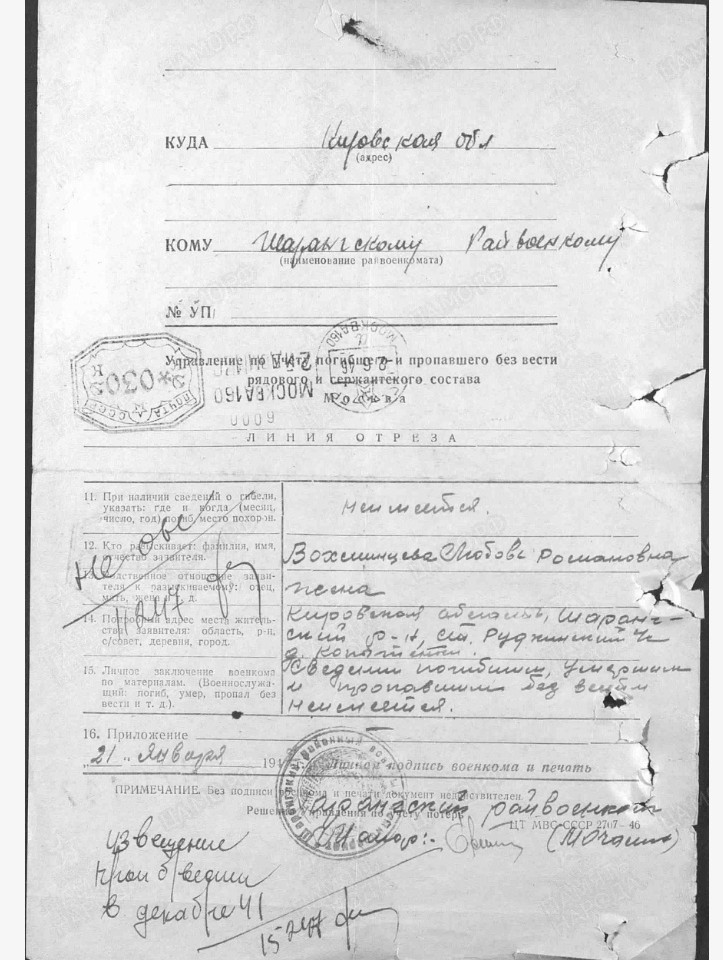 КУДА Кировская обл
(адрес)
КОМУ Шарангскому Райвоенкому
(наименование райвоенкомата)
№ УП
Управление по учету погибшего и пропавшего без вести
рядового и сержантского состава
Москва
МОСКВА 160
ПОЧТА СССР
0302
МОСКВА 160
2.6.46
6000
ЛИНИЯ ОТРЕЗА
11. При наличии сведений о гибели,
указать: где и когда (месяц,
число, год) погиб, место похор-н.
неимеется.
12. Кто разыскивает: фамилия, имя,
отчество заявителя.
Вохминцева Любовь Романовна
13. Родственное отношение заяви-
теля к разыскиваемому: отец,
мать, жена и т. д.
жена
14. Подробный адрес места житель-
ства заявителя: область, р-н,
с/совет, деревня, город.
Кировская область, Шаранг-
ский р-н,
15. Личное заключение военкома
по материалам. (Военнослужа-
щий: погиб, умер, пропал без
вести и т. д.).
Сведений погибшим, умершим
и пропавшим без вести
неимеется.
не
16. Приложение
21 января 194
Личная подпись военкома и печать
ПРИМЕЧАНИЕ Без подписи военкома и печати документ недействителен.
Решение Управления по учету потерь
Шарангский райвоенком
ЦТ МВС СССР 2707–46
Майор:-
извещение
в декабре 41